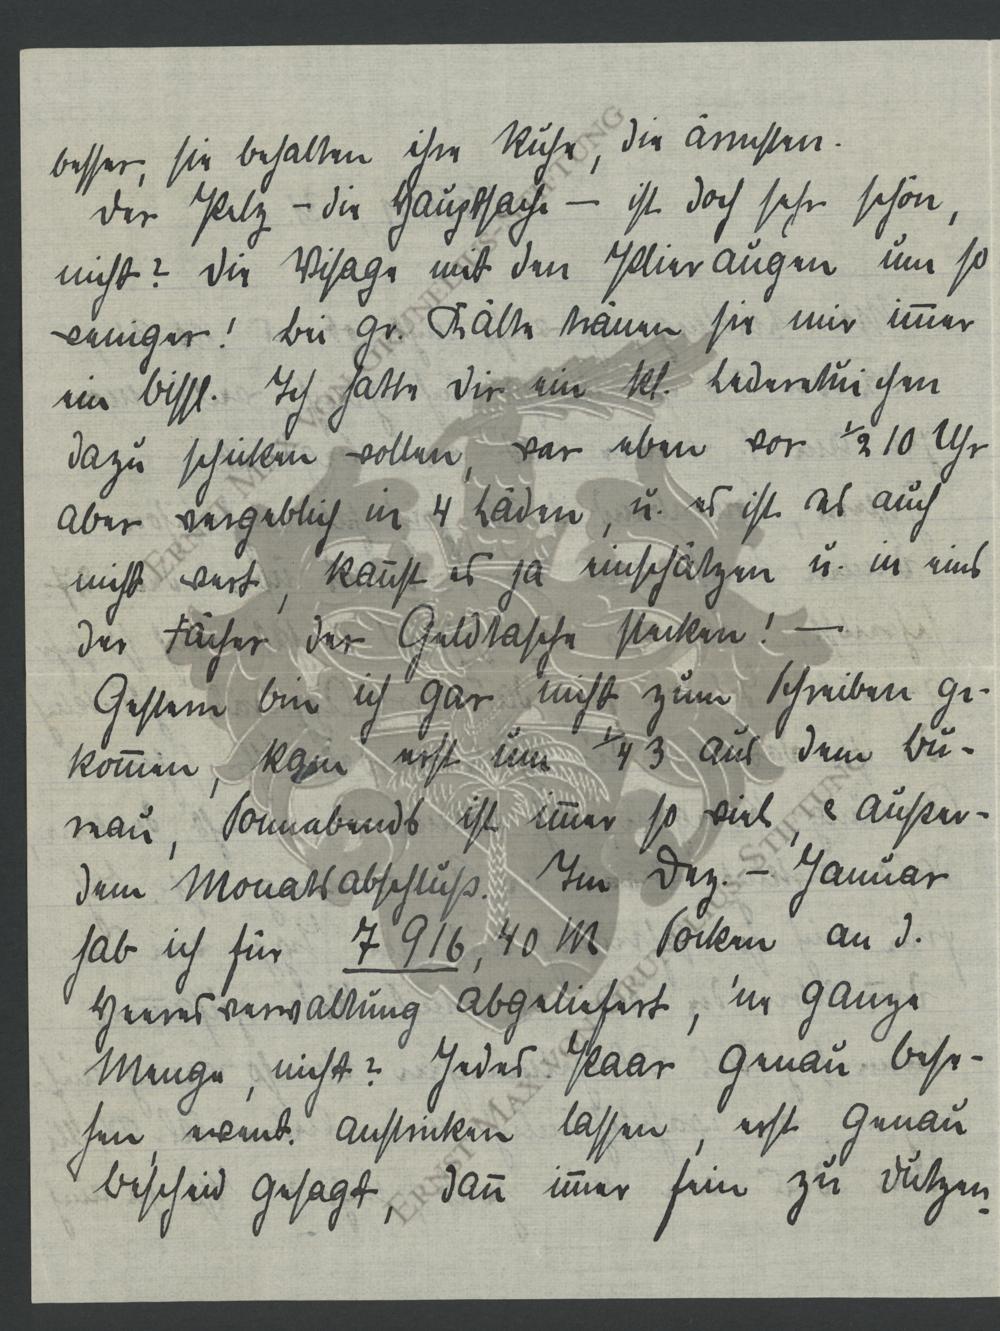 besser, sie behalten ihre Ruhe, die ärmsten.
Der Pelz – die Hauptsache – ist doch sehr schön,
nicht? Die Visage mit den Plieraugen um so
weniger! Bei gr. Kälte tränen sie mir im̅er
ein bissl. Ich hatte dir ein kl. Lederetui chen
dazu schicken wollen, war eben vor ½ 10 Uhr
aber vergeblich in 4 Läden, u. es ist es auch
nicht wert, kan̅st es ja einschätzen u. in eins
der Fächer der Geldtasche stecken! —
Gestern bin ich gar nicht zum Schreiben ge-
kom̅en, kam erst um ¼ 3 aus dem Bü-
reau, Sonnabends ist im̅er so viel, & außer-
dem Monatsabschluß. Im Dez. – Januar
hab ich für 7 916,40 M Socken an d.
Heeresverwaltung abgeliefert, 'ne ganze
Menge, nicht? Jedes Paar genau bese-
hen, event. anstricken lassen, erst genau
bescheid gesagt, dan̅ im̅er fein zu dutzen-
ERNST MAX VON GRUNELIUS-STIFTUNG
ERNST MAX VON GRUNELIUS-STIFTUNG